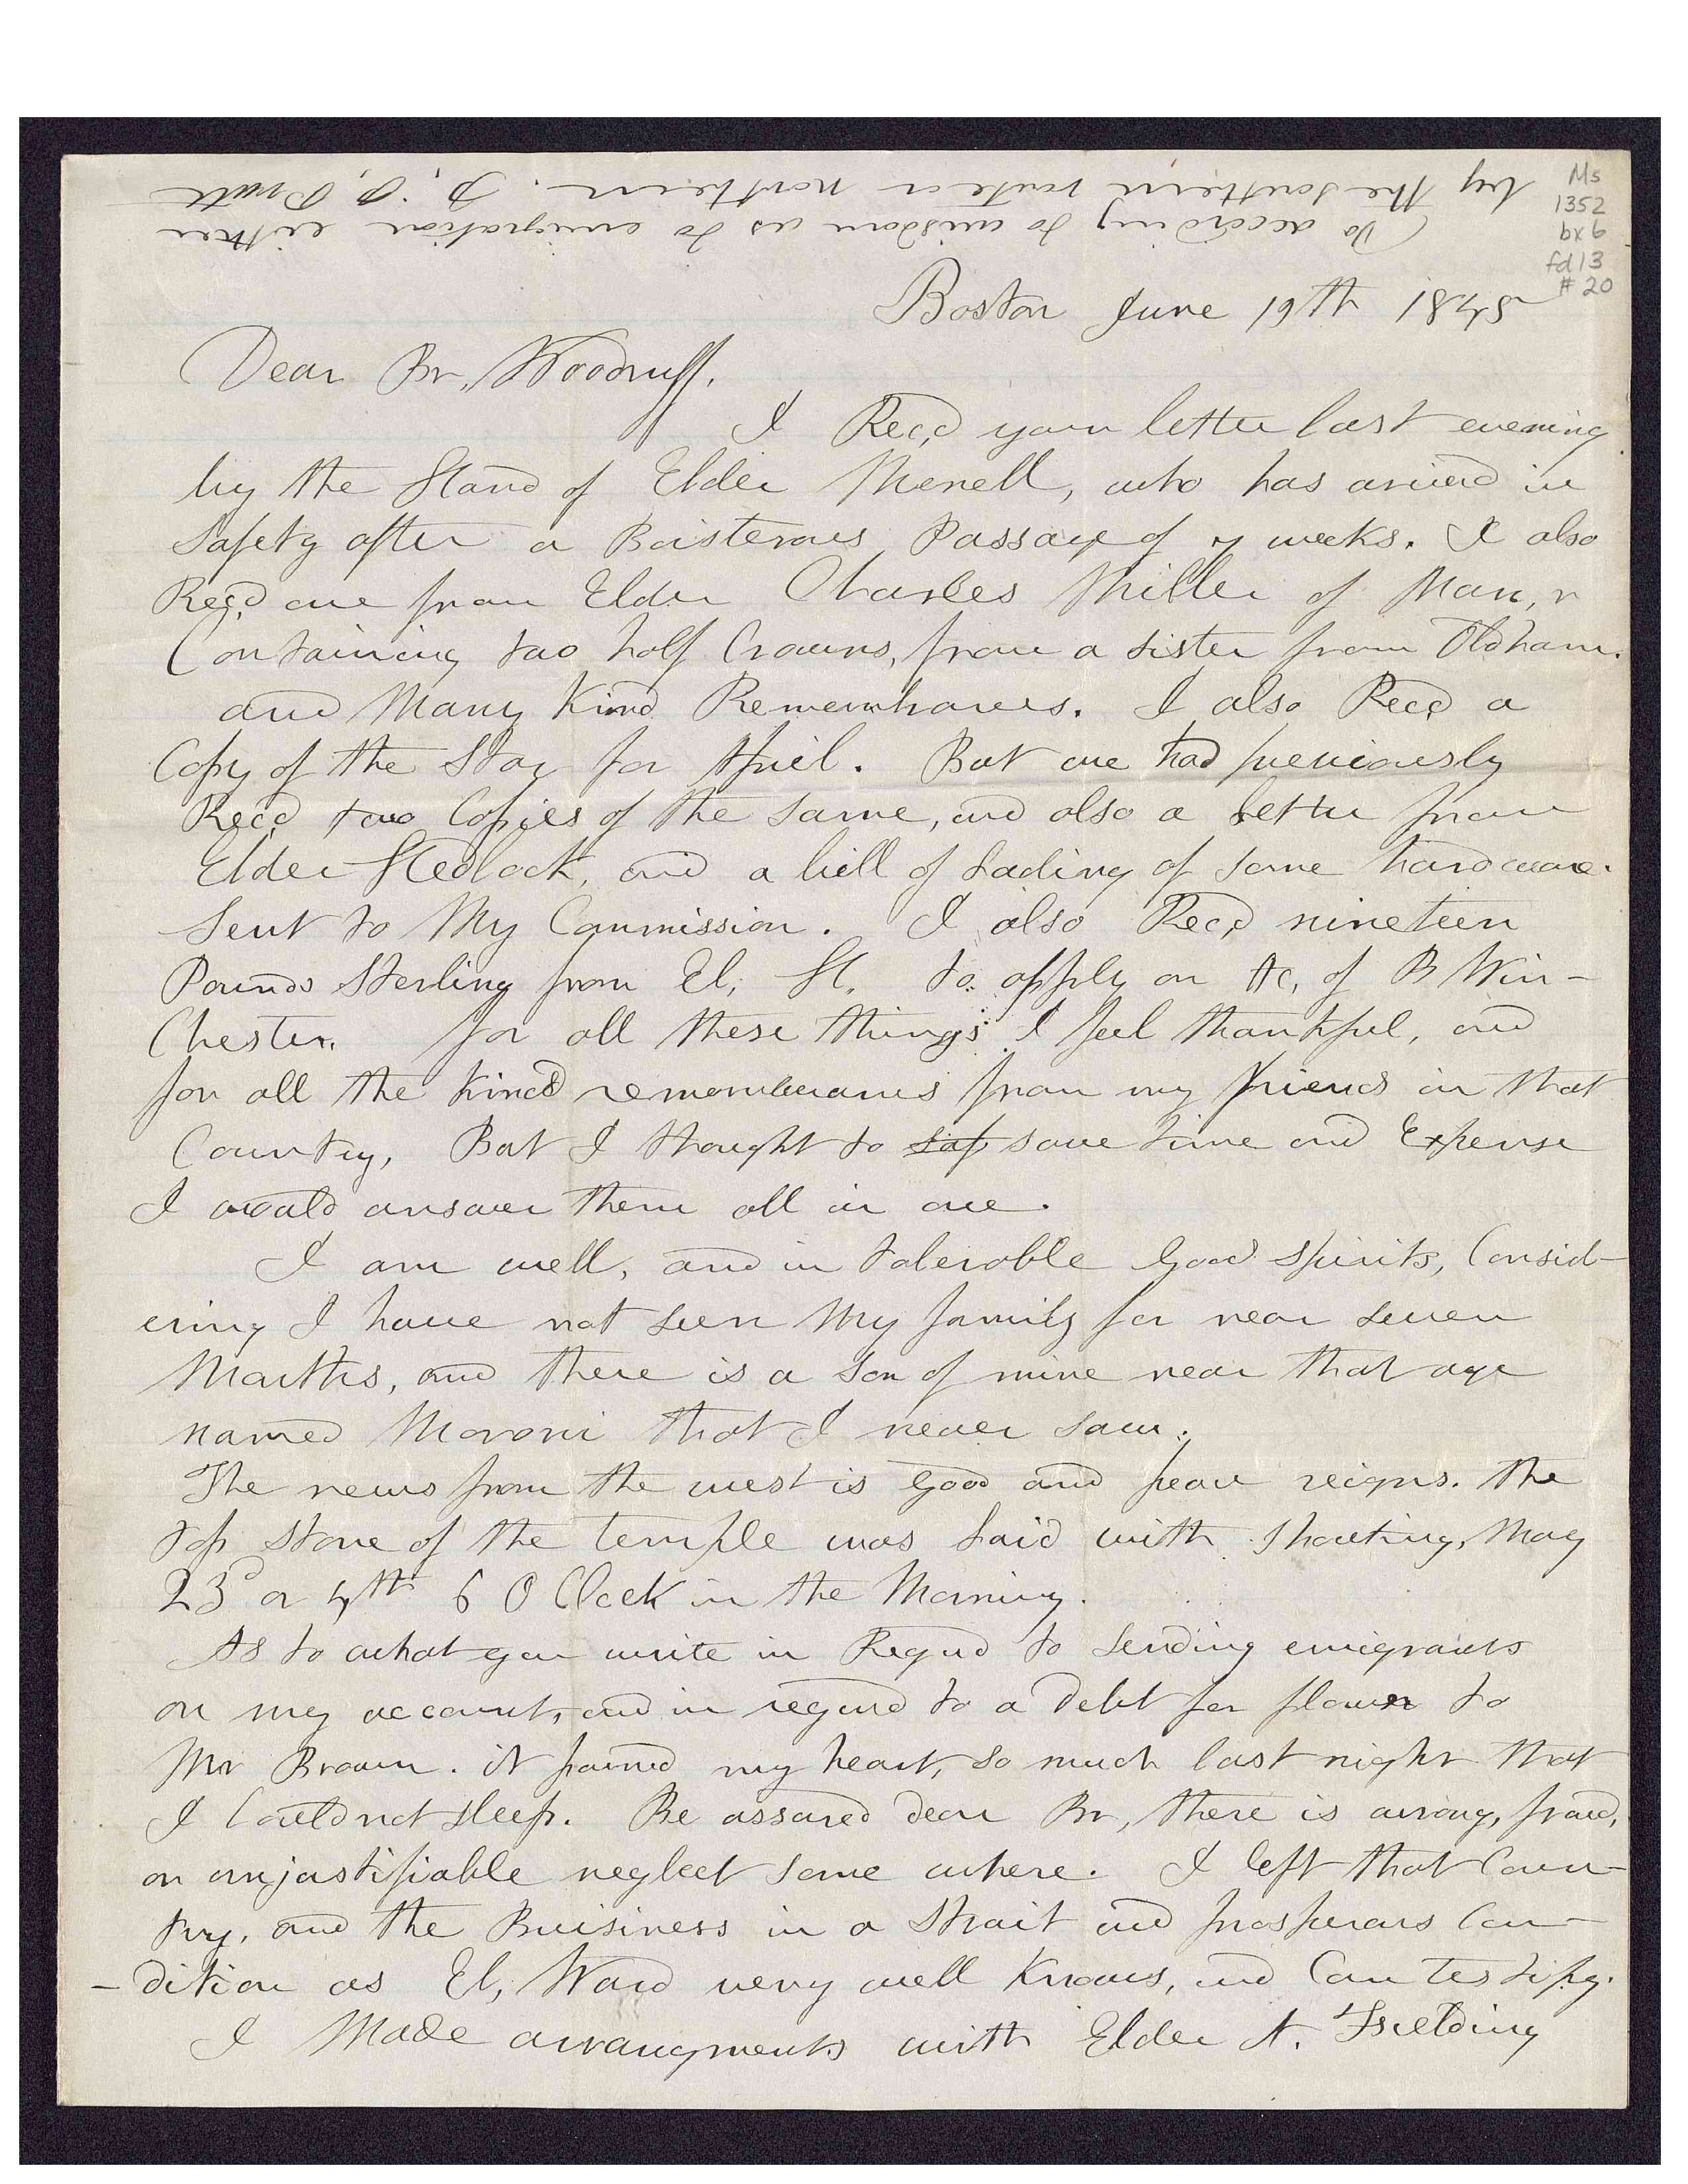 (Do according to wisdom as to emigration either
by the southern route or northern. P. P. Pratt
Ms
1352
bx 6
fd 13
# 20
Boston June 19th 1845
Dear Br, Woodruff,
I Recd, your letter last evening
by the Hand of Elder Merrell, who has arived in
Safety after a Boisterous Passage of 7 weeks. I also
Recd, one from Elder Charles Miller of Man,r
Containing two half Crowns, from a sister from Oldham.
and Many Kind Remembrances. I also Recd, a
Copy of the Star for April. But we had previously
Recd two Copies of the same, and also a letter from
Elder Hedlock, and a bill of Lading of some hardware.
Sent to My Commission. I also Recd, nineteen
Pounds Sterling from El, H. to apply on Ac, of B Win-
Chester. for all these things I feel thankful, and
for all the kind rememberances from my friends in that
Country, But I thought to saf save time and Expense
I would answer them all in one.
I am well, and in tolerable good spirits, Consid-
ering I have not seen My family for near seven
Months, and there is a son of mine near that age
named Moroni that I never saw.
The news from the west is good and peace reigns. the
top stone of the temple was laid with shouting, May
23d or 4th 6 O Clock in the Morning.
As to what you write in Regard to sending emigrants
on my account, and in regard to a debt for flower to
Mr Brown. it pained my heart, so much last night that
I Could not sleep. Be assured dear Br, there is wrong, fraud,
or unjustifiable neglect some where. I left that Coun-
try, and the Buisiness in a Strait and prosperous Con-
-dition as El, Ward very well Knows, and Can testify.
I Made arrangments with Elder A. Fielding